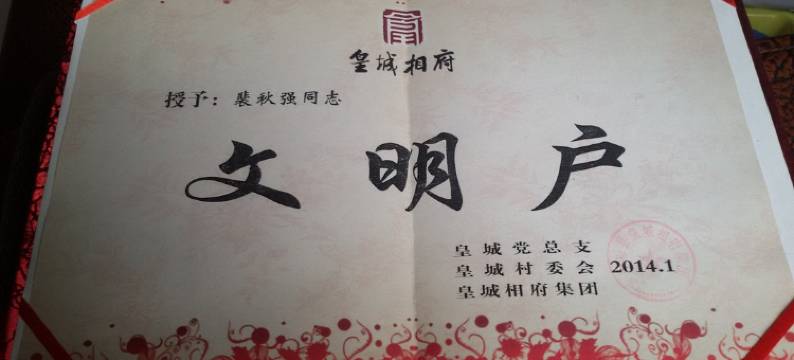 皇城相府
授予：裴秋强同志
文明户
皇城党总支
皇城村委会 2014.1
皇城相府集团